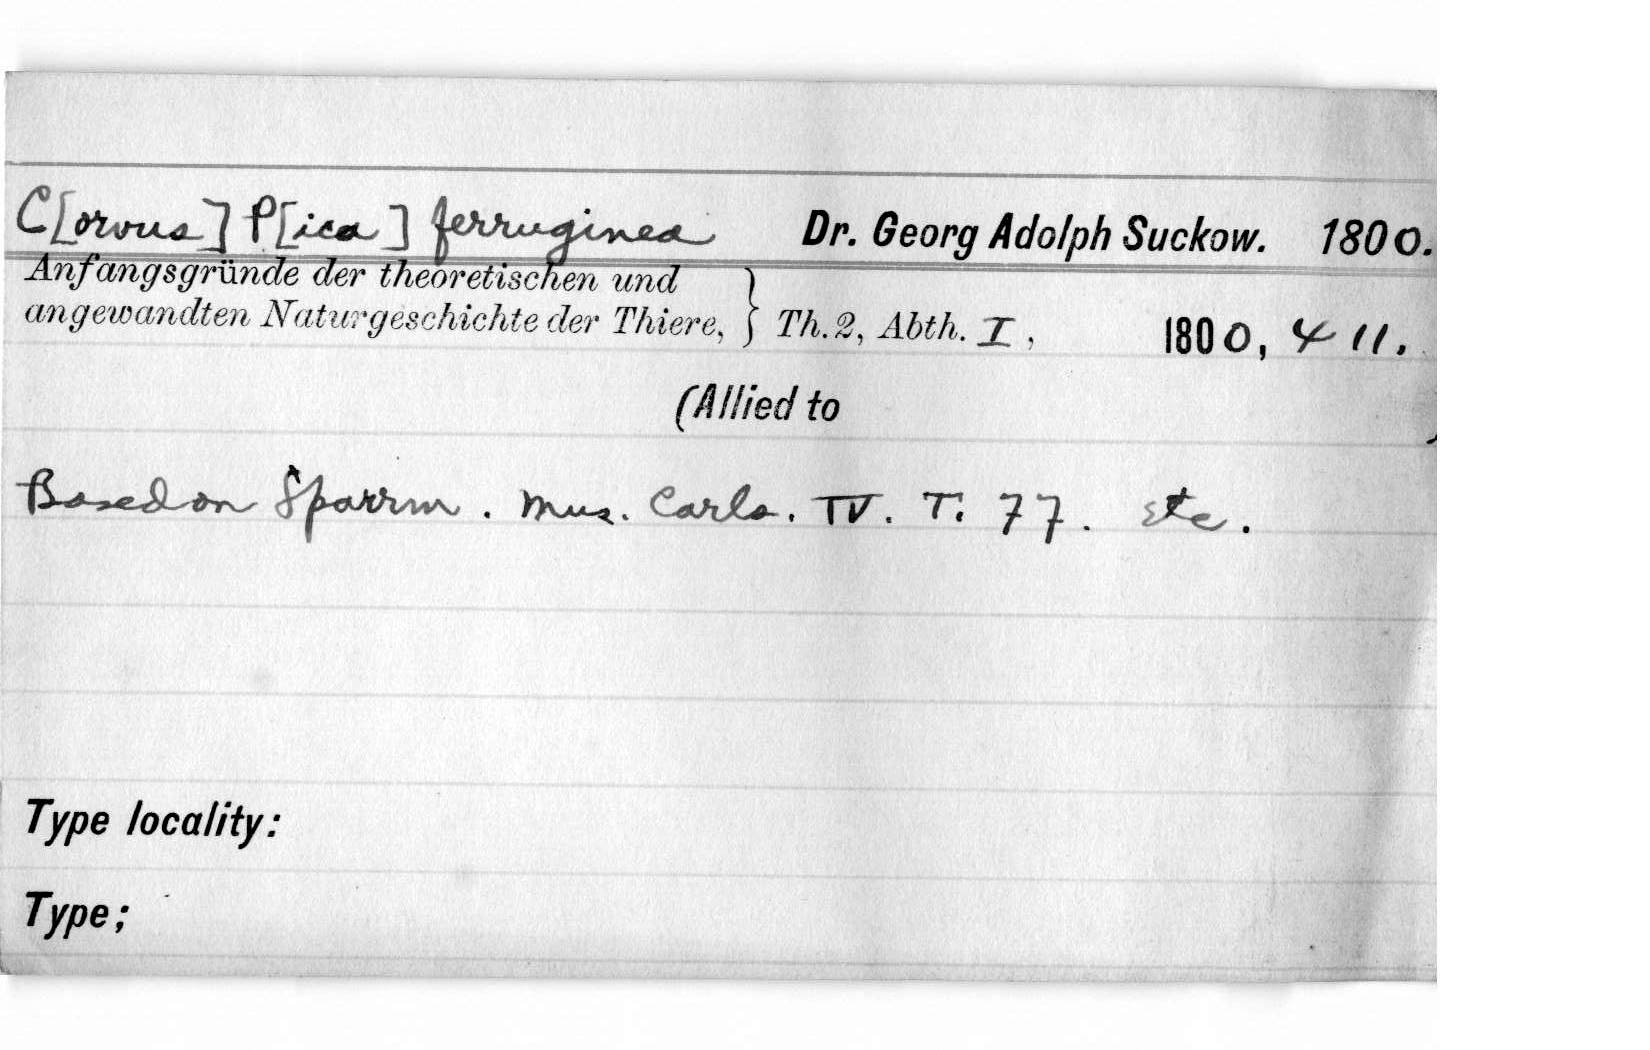 C[orvus] P[ica] ferruginea Dr. Georg Adolph Suckow. 1800.
Anfangsgründe der theoretischen und
angewandten Naturgeschichte der Thiere, } Th. 2, Abth. I, 1800, 411.
(Allied to )
Based on Sparrm. Mus. Carls. IV. T. 77. etc.
Type locality:
Type;